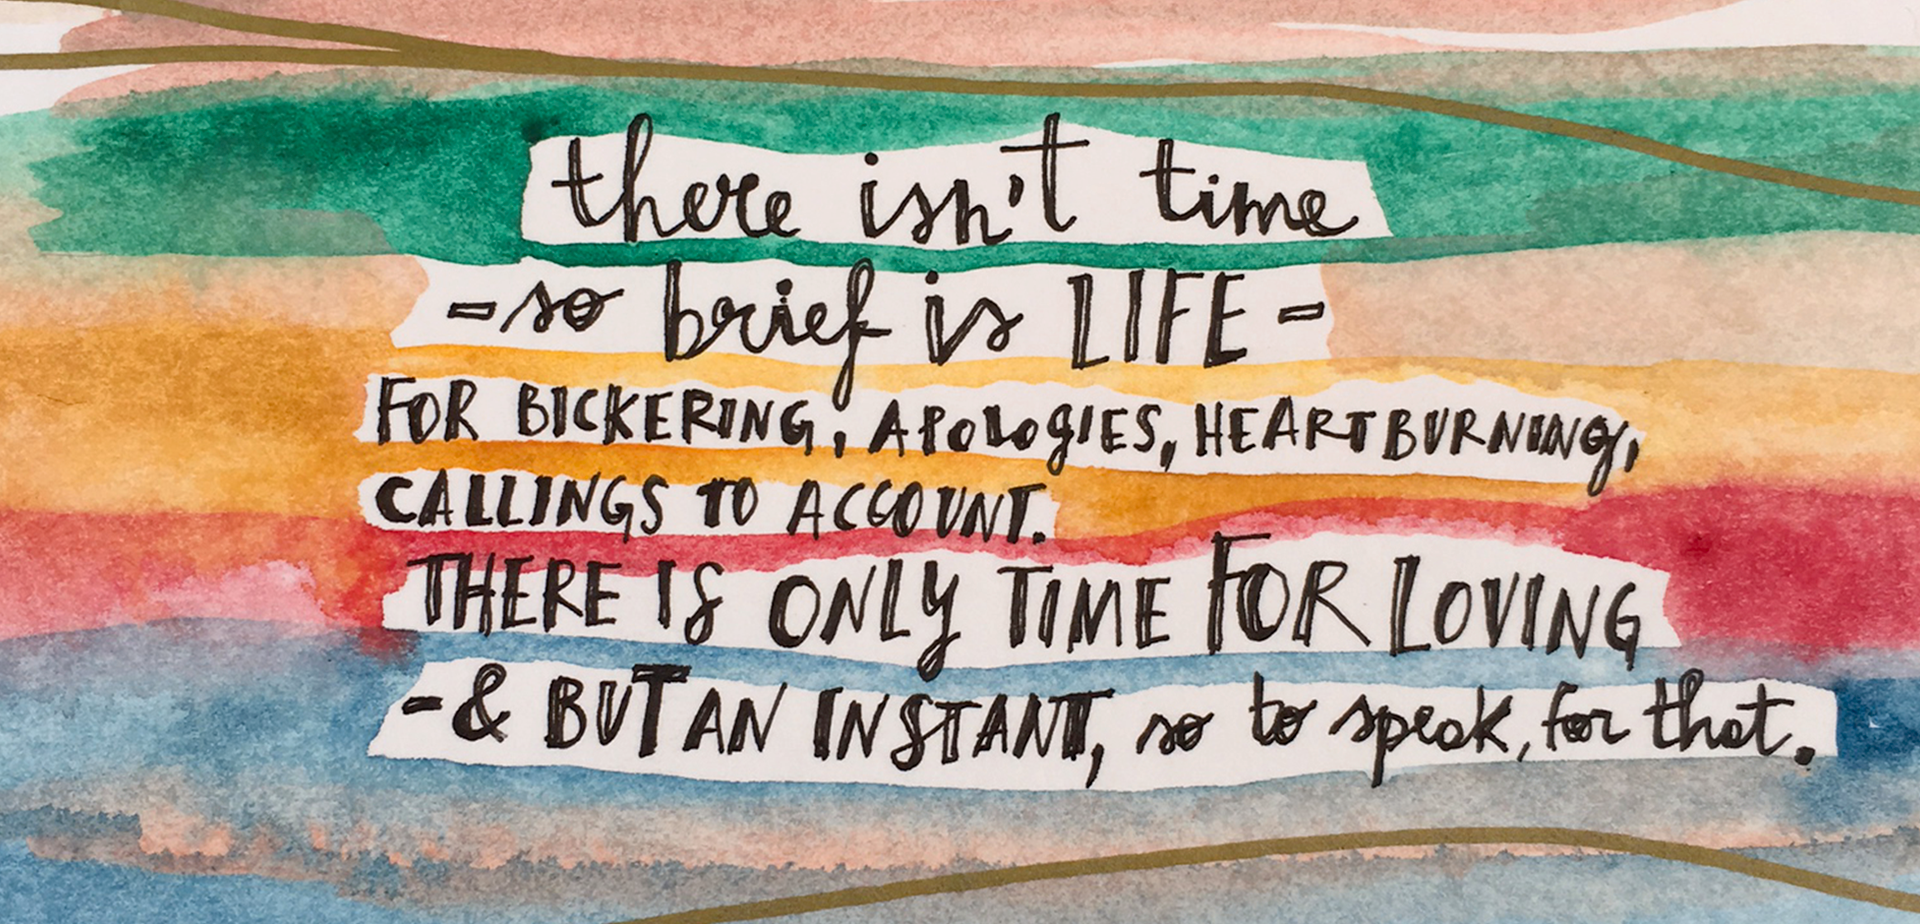 there isn't time
-so brief is LIFE-
FOR BICKERING, APOLOGIES, HEARTBURNING,
CALLINGS TO ACCOUNT.
THERE IS ONLY TIME FOR LOVING
-& BUT AN INSTANT, so to speak, for that.